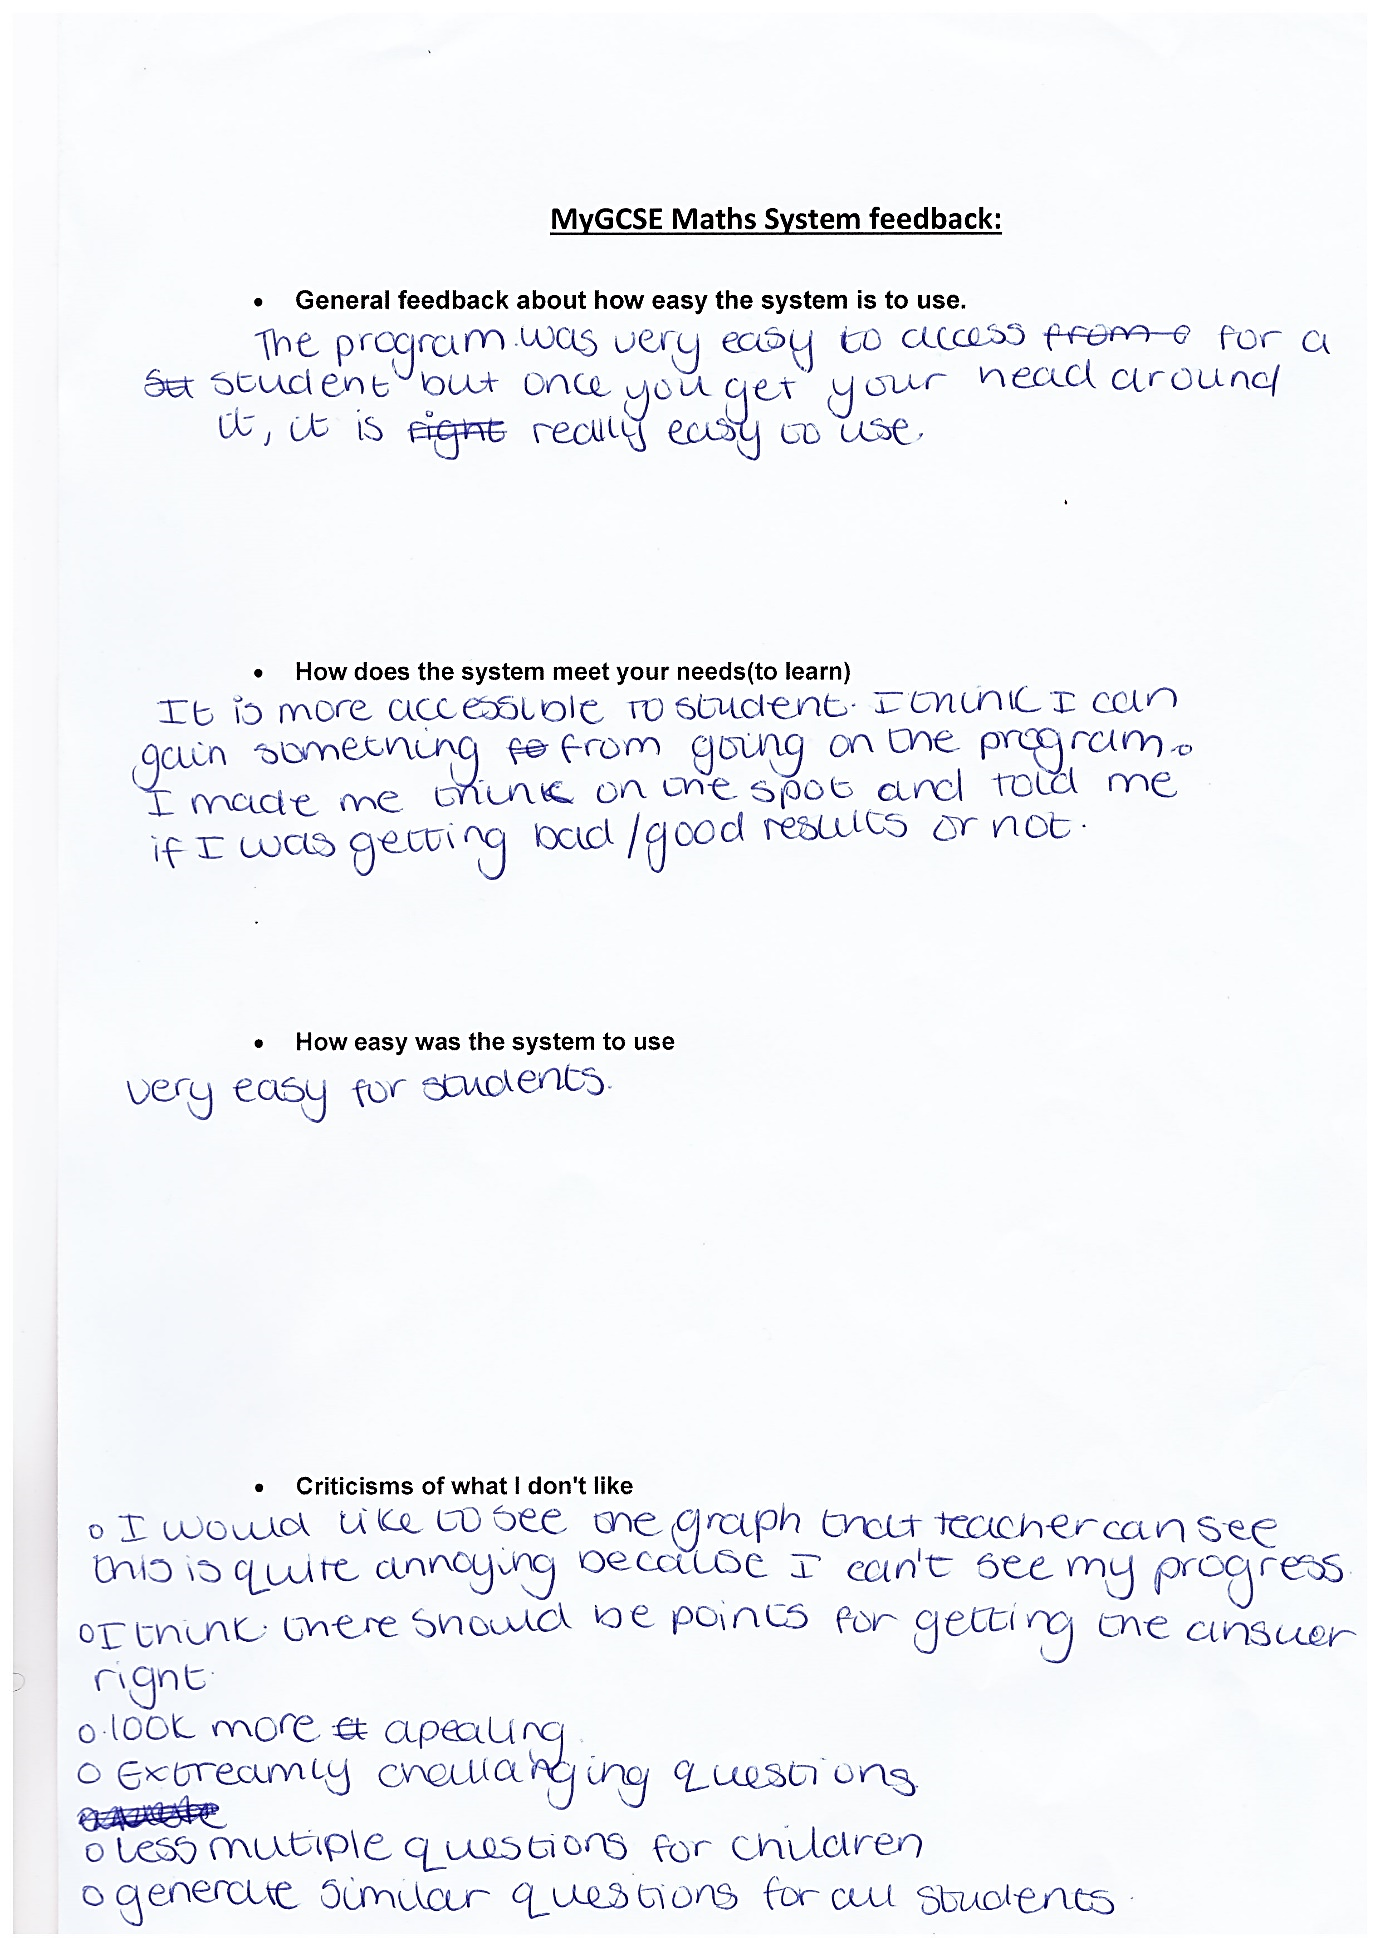 MyGCSE Maths System feedback:
• General feedback about how easy the system is to use.
The program was very easy to access from e for a
Stu student but once you get your head around
it, it is right really easy to use.
• How does the system meet your needs(to learn)
It is more accessible to student. I think I can
gain something fo from going on the program.
I made me think on the spot and told me
if I was getting bad/good results or not.
• How easy was the system to use
very easy for students.
• Criticisms of what I don't like
o I would like to see the graph that teacher can see
this is quite annoying because I can't see my progress.
o I think there should be points for getting the answer
right.
o look more at apealing.
o Extreamly challanging questions
o less mutiple questions for children
o generate similar questions for all students.